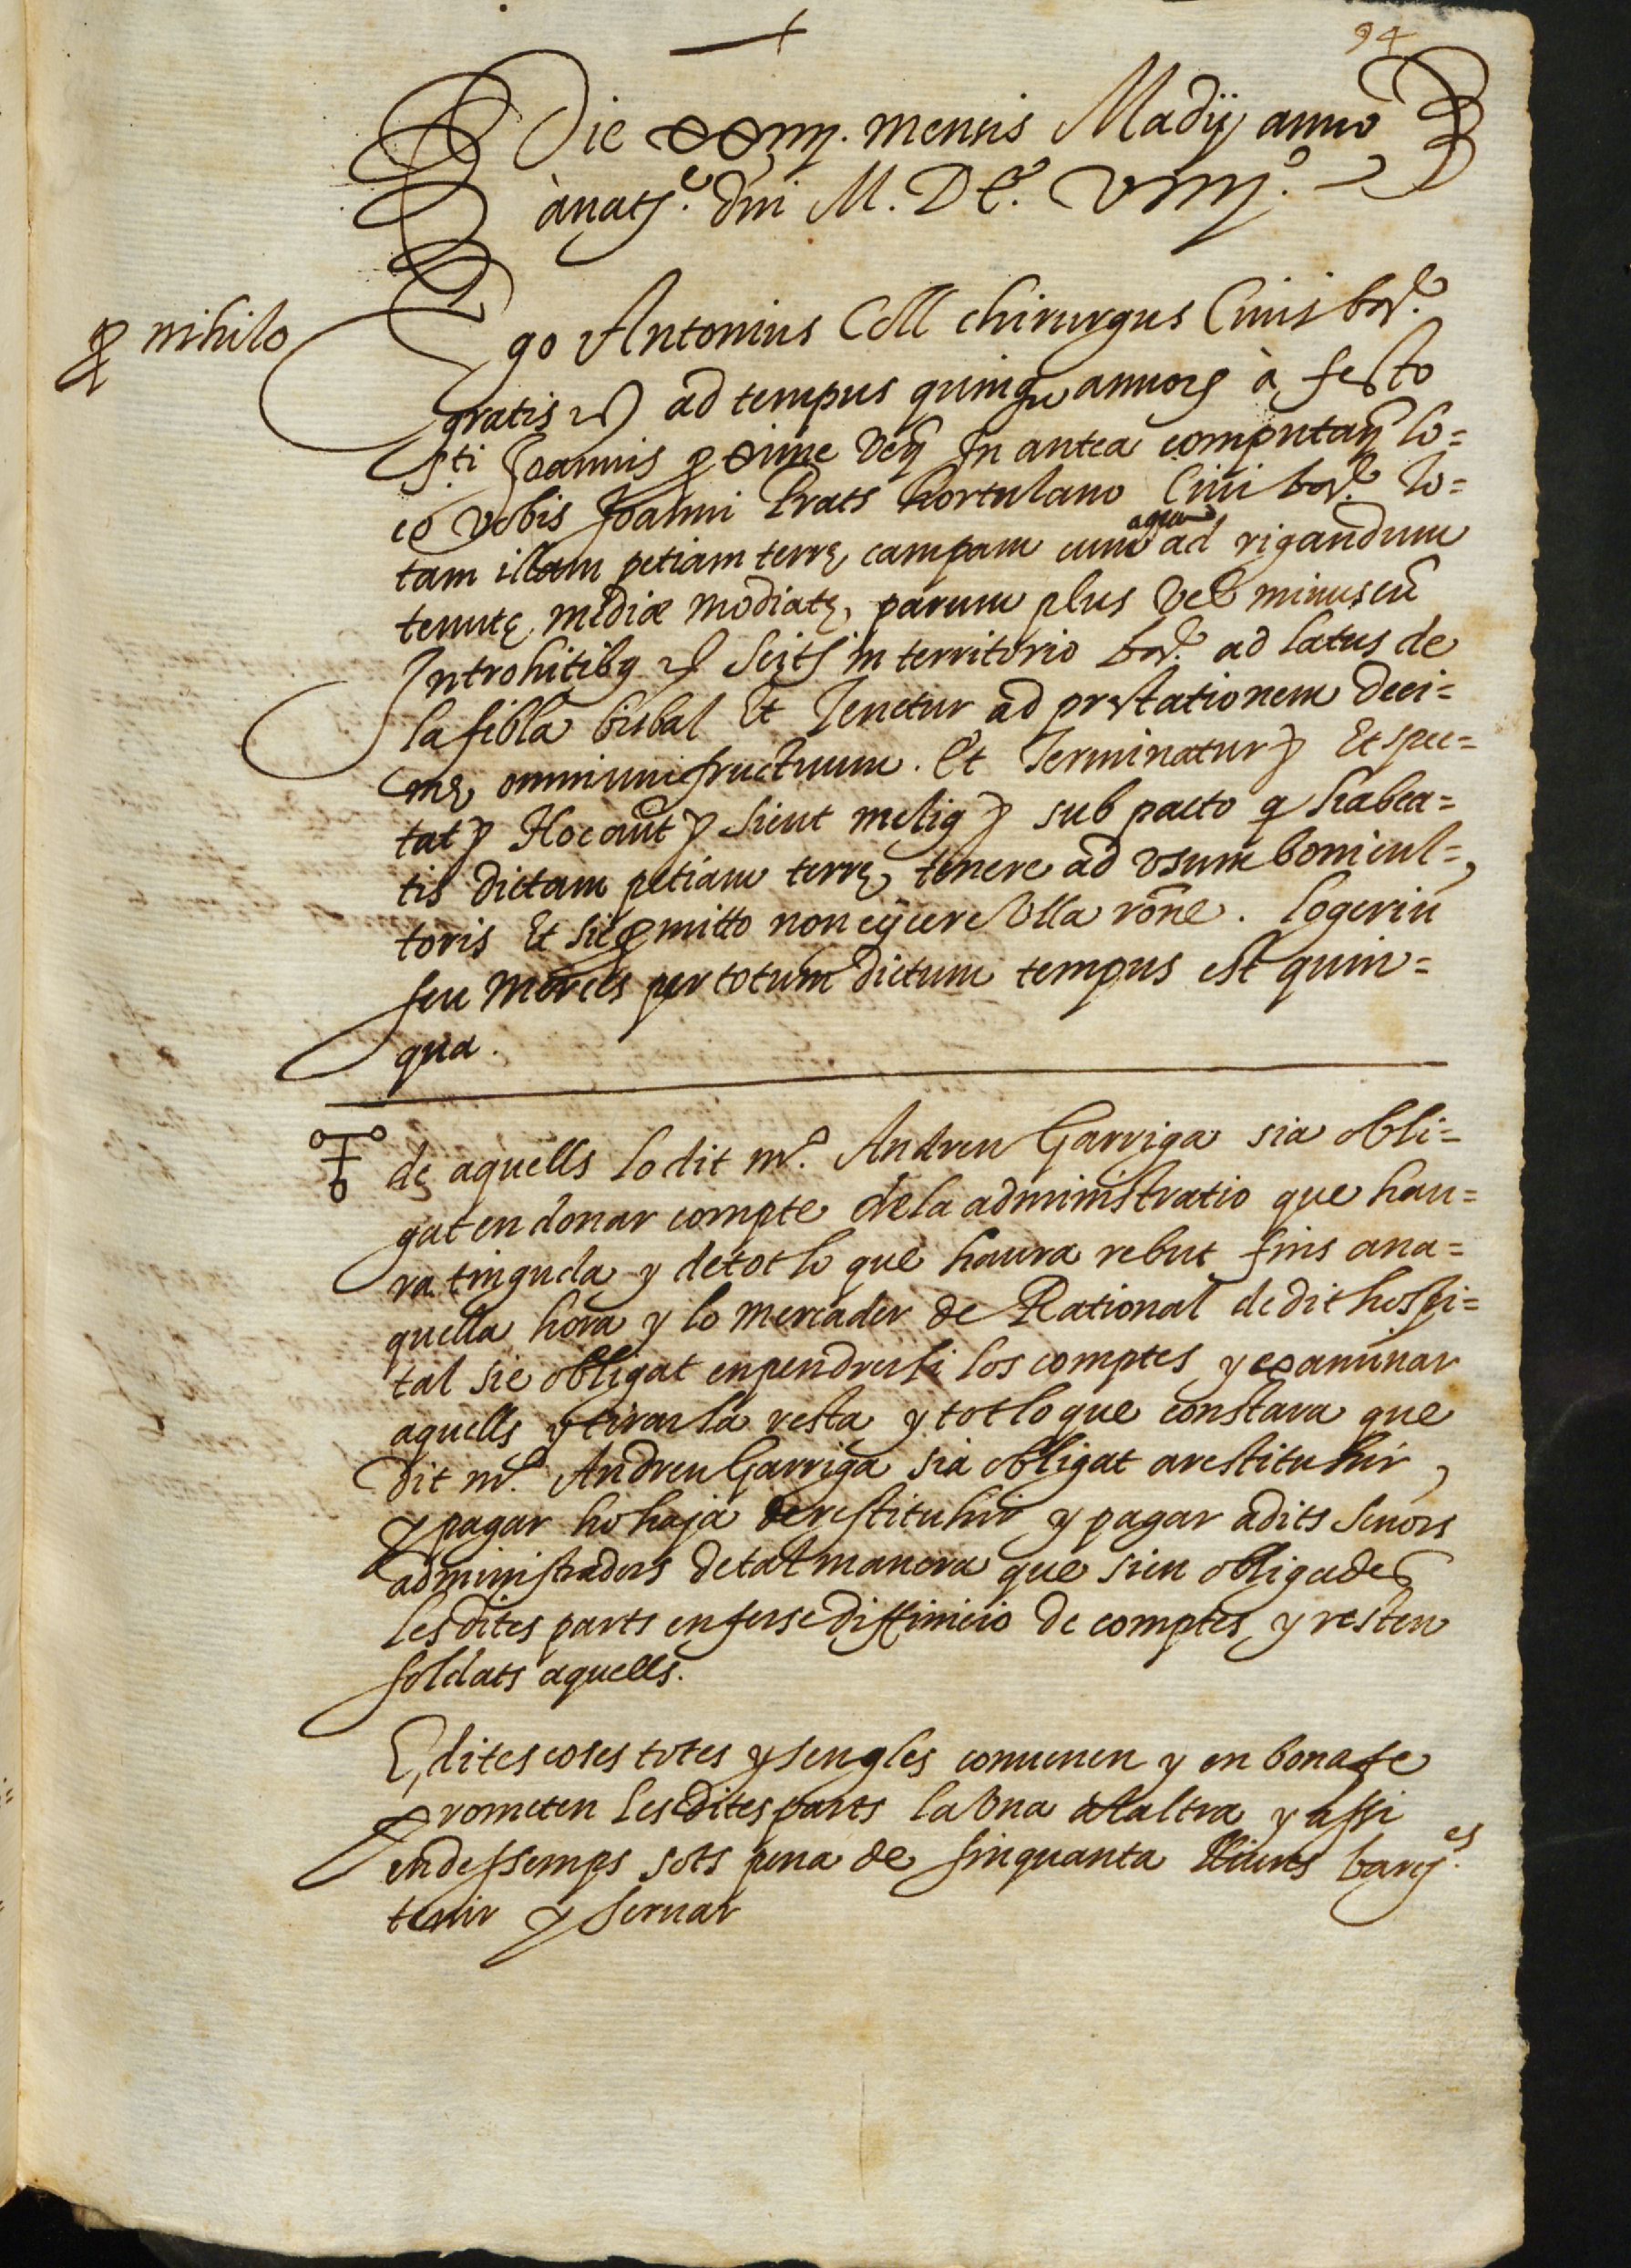 94
Die xxiiij. mensis Madij anno
à natte. dni M. D C.º viiijº.
p nihilo
Ego Antonius Coll chirurgus Ciuis bar.e
gratis &c ad tempus quinq annor à festo
sti Joannis pxime in antea computan lo=
co vobis Joanni Prats hortulano Ciui bar.e to=
tam illam petiam terrę campam cum aqua ad rigandum
tenutę mediæ modiatę, parum plus vel minus cũ
Introhitibq &c in territorio bar.e ad latus de
la fibla bisbal Et Tenetur ad prestationem deci=
mę omnium fructuum. Et Terminatur &c Et spec=
tat &c Hoc aũt &c sicut melius &c sub pacto q habea=
tis dictam petiam terrę tenere ad vsum boni cul=
toris Et sic pmitto non eijcere Vlla rõne. Logeriũ
seu merces per totum dictum tempus est quin=
qua.
de aquells lo dit mº. Andreu Garriga sia obli=
gat en donar compte de la administratio que hau=
ra tinguda y de tot lo que haura rebut fins ana=
quella hora y lo mercader de Rational de dit hospi=
tal sie obligat en pendrerli los comptes y examinar
aquells y tirar la resta y tot lo que constara que
dit mº. Andreu Garriga sia obligat a restituhir,
y pagar ho haja de restituhir y pagar a dits senors
administradors de tal manera que sien obligades
les dites parts en ferse diffinicio de comptes y resten
soldats aquells.
E, dites coses totes y sengles conuenen y en bona fe
prometen les dites parts la Vna a la altra y assi
endessemps sots pena de sinquanta lliures barses.
tenir y seruar